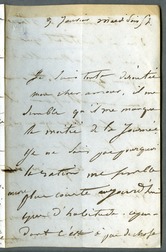 9 janvier mardi soir 7h
Je suis toute démontée
mon cher amour, il me
semble qu'il me manque
la moitié de la journée
Je ne sais pas pourquoi
la me semble
plus courte aujourd'hui
que d'habitude.
dont c'est à peu de chose